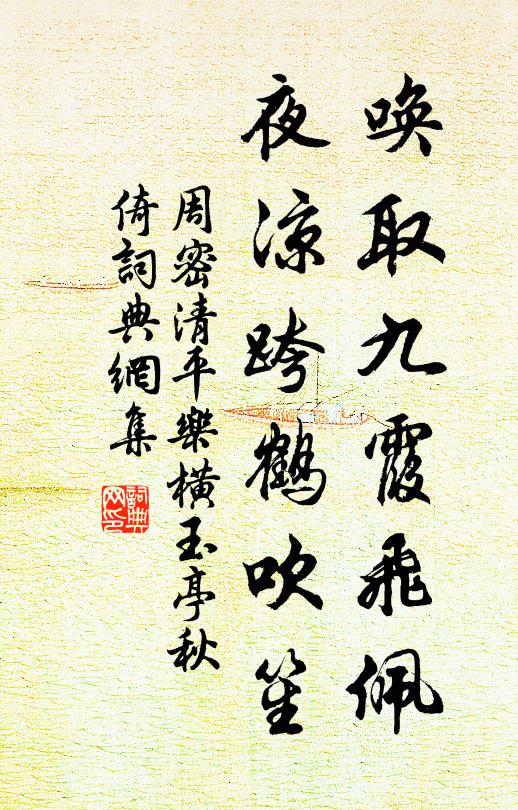 唤取九霞飛佩
夜涼跨鶴吹笙
周密清平樂橫玉亭秋
倚詞典網集
詞典
网印